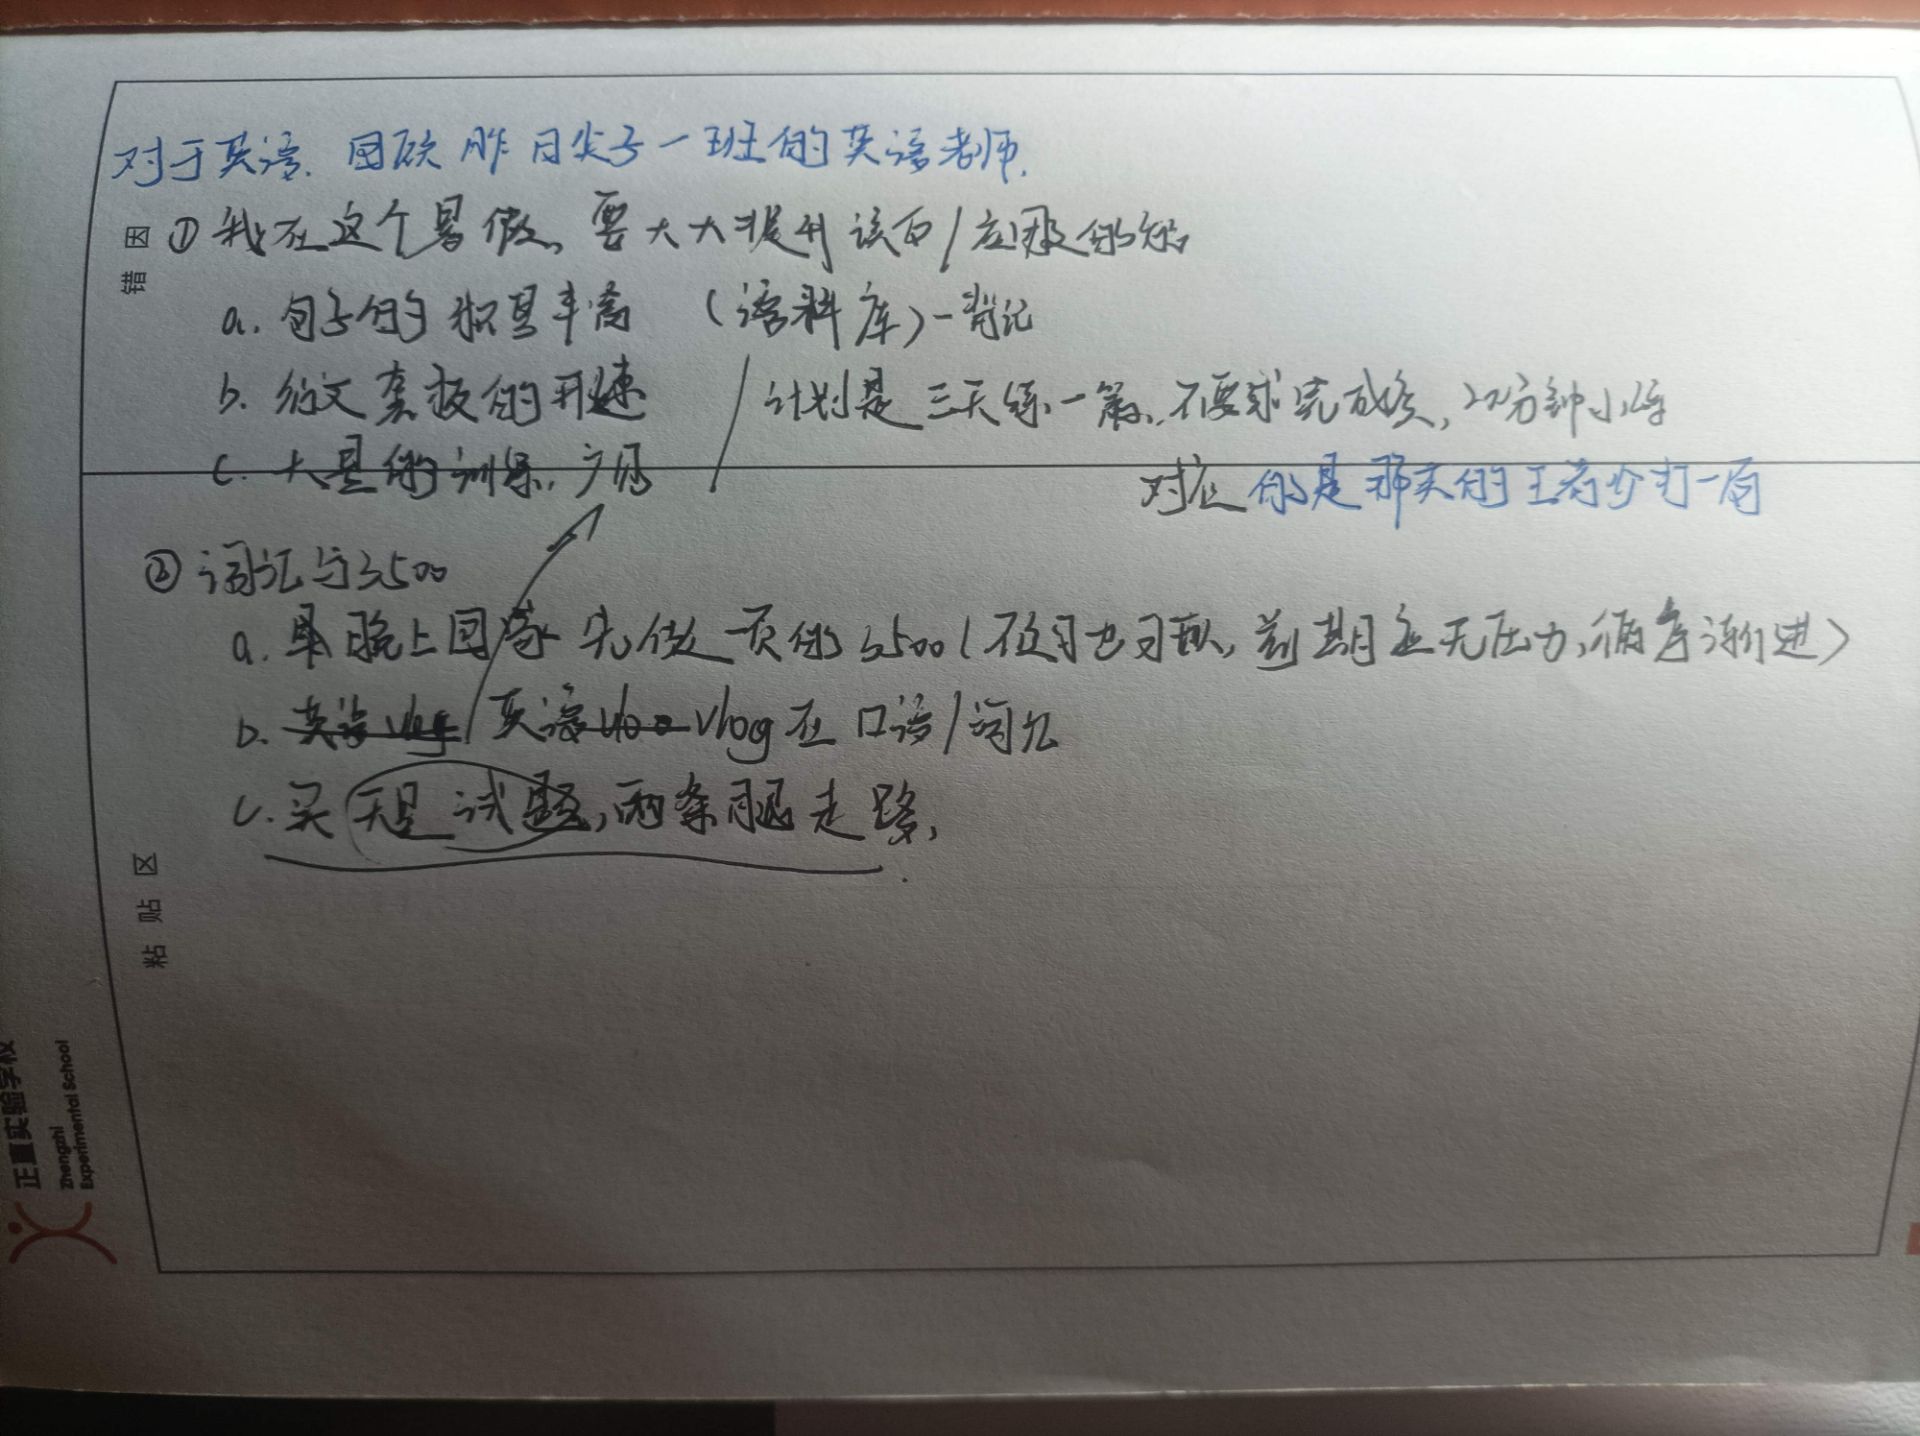 对于英语.回顾昨日尖子一班的英语老师.
错因
①我在这个暑假,要大大提升读后/应用的
a.句子的积累丰富 (语料库)-背记
b.行文套板的 计划是三天练一篇,不要求完成,20分钟小练
c.大量的训练,
对应的是那天的王者少打一局
②词汇与3500
a.晚上回家先做一页的3500(,前期无压力,循序渐进)
b.英语vlog英语vlog在口语/词汇
c.买天星试题,两条腿走路,
粘贴区
正直实验学校
Zhengzhi
Experimental School